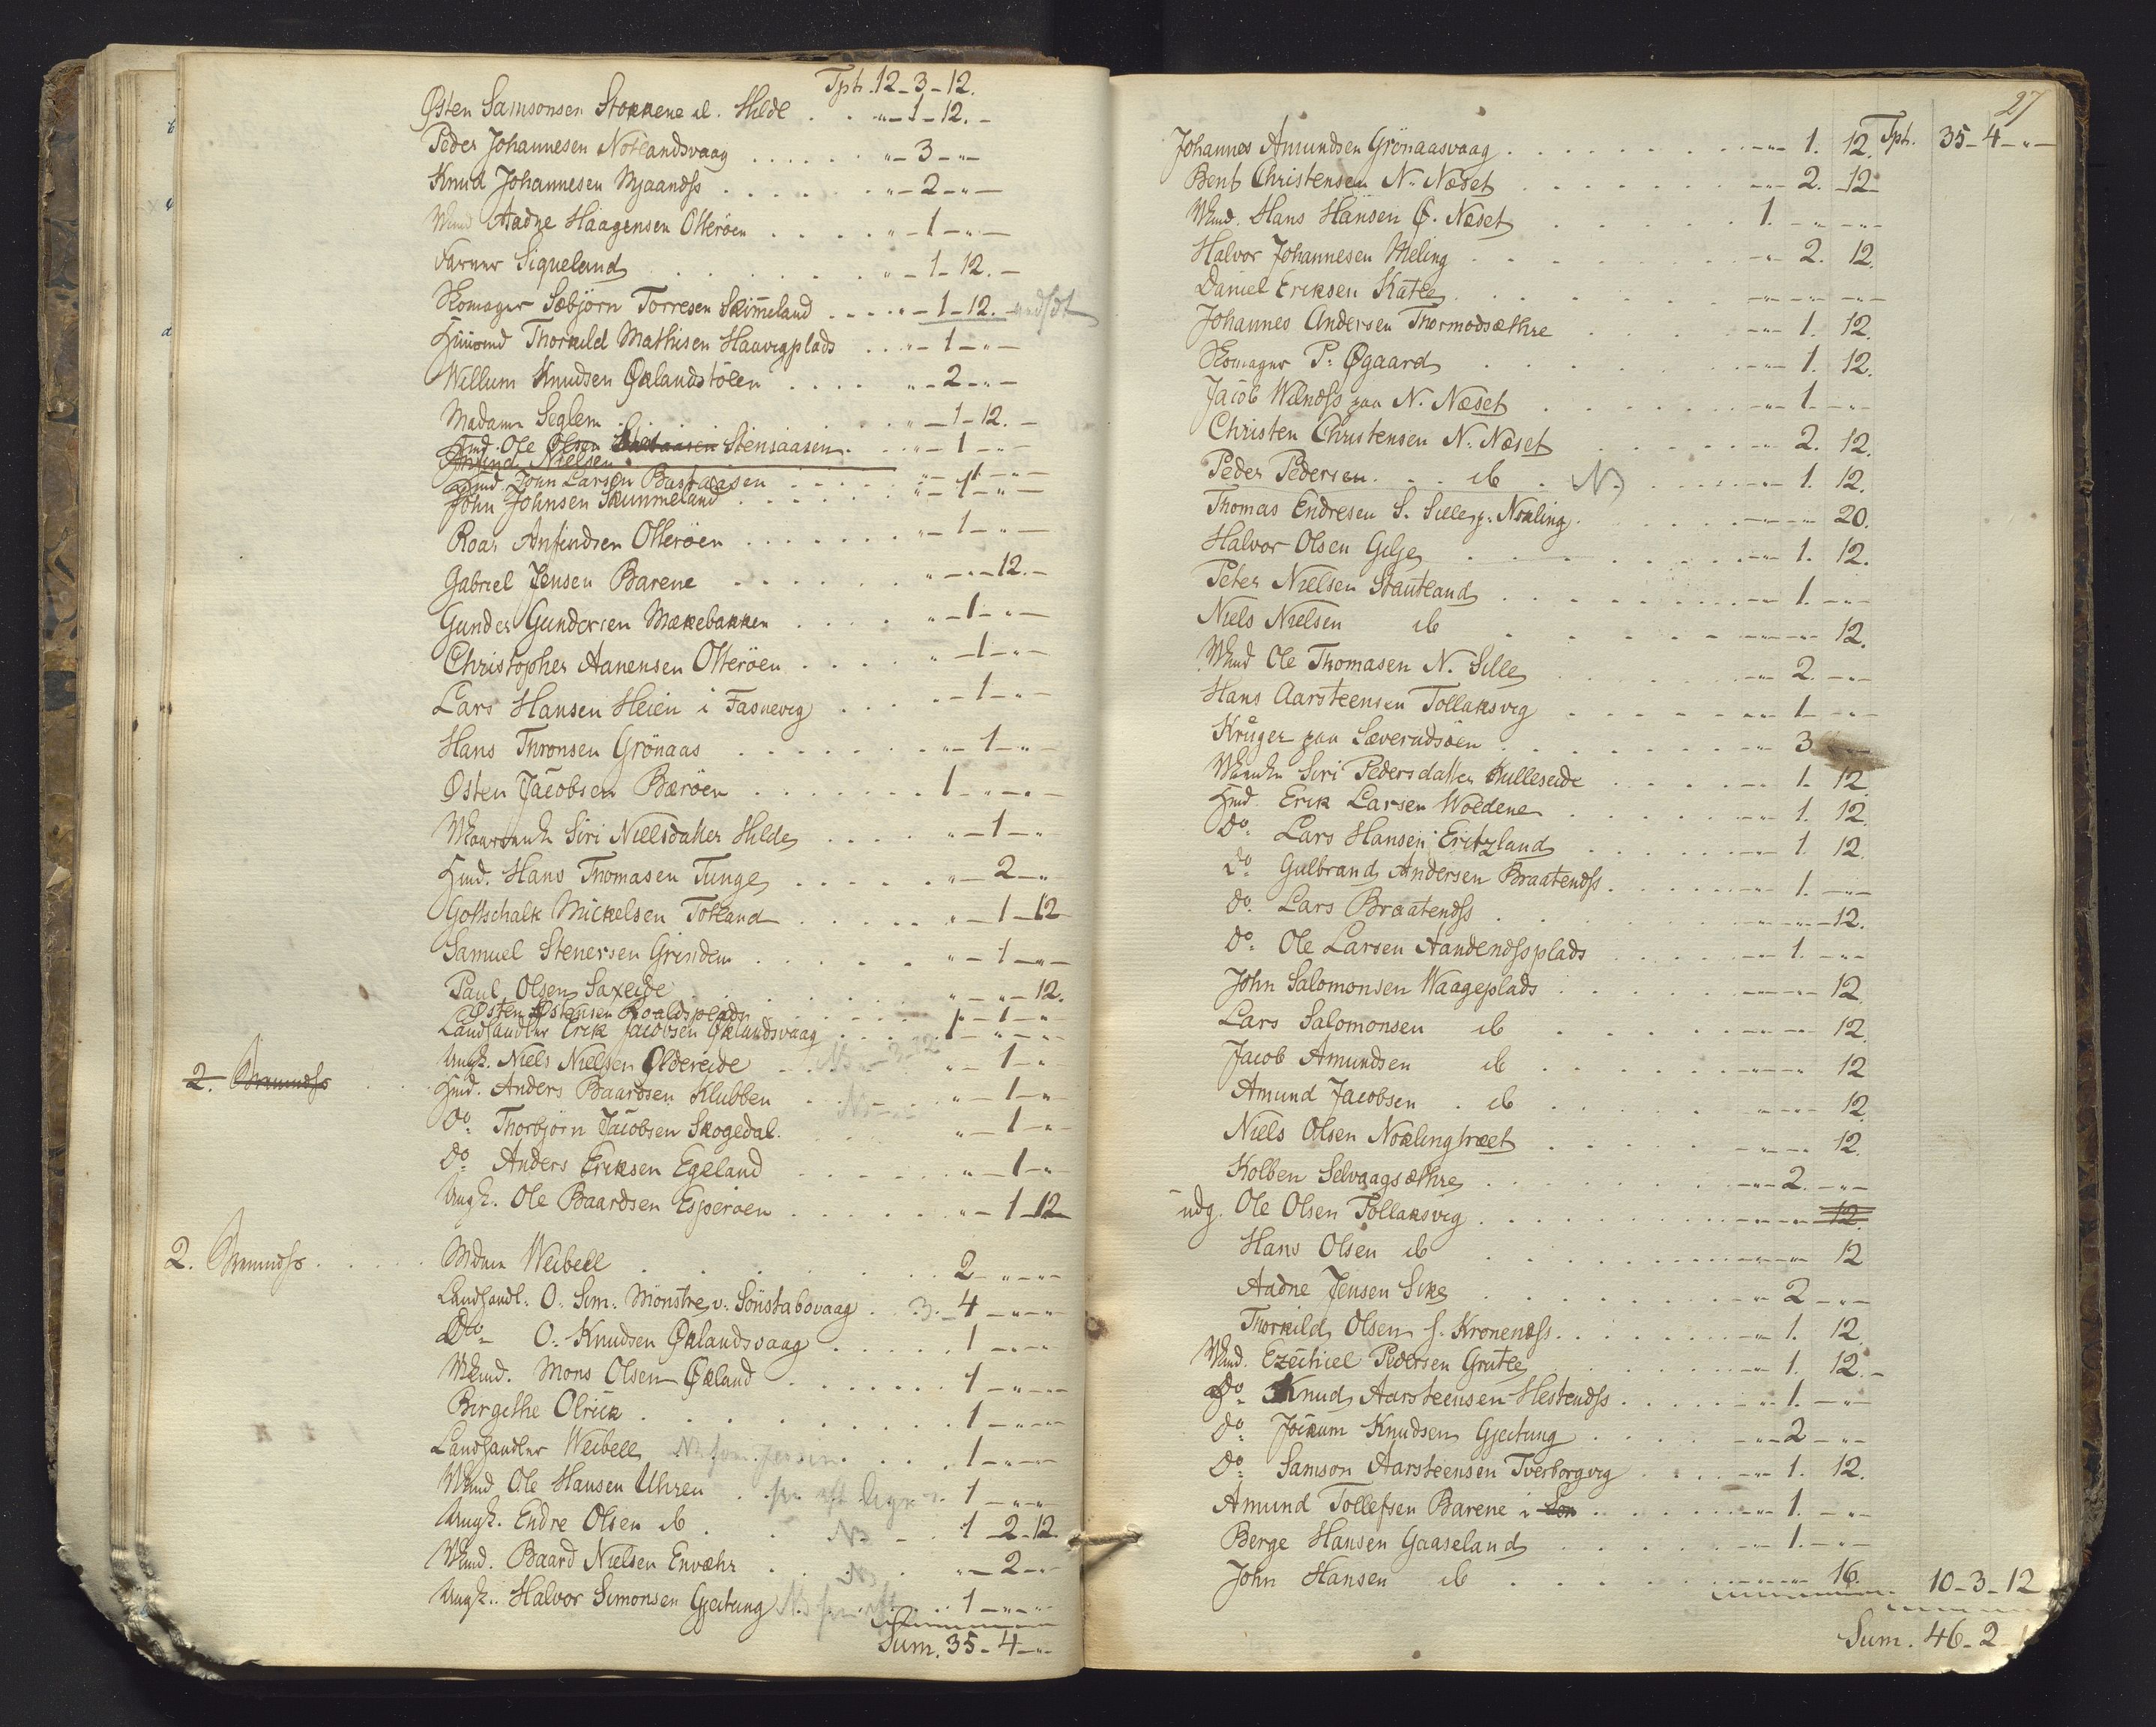 Tpt. 12-3-12.
Østen Samsonsen Stokkene al. Hilde . . "-1-12.-
Peder Johannesen Notlandsvaag . . . . . . "-3-"-
Knud Johannesen Mjaands . . . . . "-2-"-
Aadne Haagensen Otteröen . . . . "-1-"-
Farver Siqueland . . . . . . "-1-12.-
Skomager Sæbjörn Torresen Skimeland . . . . "-1-12.
Thorkild Mathisen Haavigplads . . . "-1-"-
Willum Knudsen Øklandstölen . . . . "-2-"-
Madame Seglem . . . . . . "-1-12.-
Hmd. Ole Olsen Stensaasen . . "-1-"-
Amund Nielsen
Hmd. John Larsen Bastaasen . . . . . "-1-"-
John Johnsen Skimmeland . . . . . "-1-"-
Roar Anfindsen Otteröen . . . . . . . "-1-"-
Gabriel Jensen Barene . . . . . . "-"-12.-
Gunder Gundersen Mækebakken . . . . "-1-"-
Christopher Aanensen Otteröen . . . . "-1-"-
Lars Hansen Heien i Fasnevig . . . "-1-"-
Hans Thronsen Grönaas . . . . . . . "-1-"-
Østen Jacobsen Bæröen . . . . . . . 1-"-"-
Siri Nielsdatter Hilde . . . "-1-"
Hmd. Hans Thomasen Tunge . . . . . "-2-"
Gottschalk Mickelsen Totland . . . . . "-1-12
Samuel Stenersen Grinden . . . . . . "-1-"-
Paul Olsen Saxeide . . . . . . . "-"-12.
Østen Østensen Roaldsplads . . . . "-1-"
Landhandler Erik Jacobsen Øklandsvaag . . . . 1-"-"
Ungk. Niels Nielsen Oldereide . . . "-1-"
2. Hmd. Anders Baardsen Klubben . . . . "-1-"
Do. Thorbjörn Jacobsen Skogedal . . . "-1-"-
Do. Anders Eriksen Egeland . . . . . . "-1-"
Ungk. Ole Baardsen Esperöen . . . . . . "-1-12
2. . . . . Mdme Weibell . . . . . . . . 2-"-"
Landhandl. O. Sim. Mönstre v. Sönstabövaag . . 3.- 4-"-"
Do O. Knudsen Øklandsvaag . . . . . 1-"-"
Mons Olsen Økland . . . . . . 1-"-"
Birgithe Olrick . . . . . . . . . 1-"-"
Landhandler Weibell . . . . 1-"-"
Ole Hansen Uhren . . 1-"-"
Ungk. Endre Olsen ib . . NB - . 1-2-12.
Baard Nielsen Envæhr . . . NB . "-2-"
Ungk. Halvor Simonsen Gjeitung NB . . 1-"-"
Sum. 35-4-"-
27
Tpt. 35-4-"-
Johannes Amundsen Grönaasvaag . . . . . . . . "-1. 12.
Bent Christensen N. Næset . . . . . . . "-2. 12
Hans Hansen Ö. Næset . . . . . . 1.-"-"
Halvor Johannesen Meling . . . . . . . "-2. 12.
Daniel Eriksen Katle . . . . . . . "-"-"
Johannes Andersen Thormodsæthre . . . . "-1. 12.
Skomager P. Øgaard . . . . . . . "-1. 12.
Jacob paa N. Næset . . . . . . "-1.-"
Christen Christensen N. Næset . . . . . "-2. 12.
Peder Pedersen . . ib . NB . . . . "-1. 12.
Thomas Endresen S. Sille p. Nokling . . . . . "-"-20.
Halvor Olsen Gilje . . . . . . . "-1. 12.
Peter Nielsen Stautland . . . . . . . . "-1.-"
Niels Nielsen ib . . . . . . "-"-12.
Ole Thomasen N. Sille . . . . . . "-2.-"
Hans Aarsteensen Tollaksvig . . . . . . "-1-"
Krüger paa Sæverudsöen . . . . . . . . "-3
Siri Pedersdatter Kulleseide . . . . . "-1. 12
Hmd. Erik Larsen Woldene . . . . . . "-1. 12.
Do. Lars Hansen Eritzland . . . . . . "-1. 12.
Do. Gulbrand Andersen Braatends . . . . . "-1.-"
Do. Lars Braatends . . . . . . . "-"-12.
Do. Ole Larsen Aandendsplads . . . . "-1.-"
John Salomonsen Waageplads . . . . . "-"-12
Lars Salomonsen ib . . . . . "-"-12
Jacob Amundsen ib . . . . . . "-"-12
Amund Jacobsen . ib . . . . . . "-"-12.
Niels Olsen Noklingtræet . . . . . "-"-12.
Kolben Selvaagsæthre . . . . . . . "-2.-"
udg. Ole Olsen Tollaksvig . . . . . . . . "-"-12.
Hans Olsen ib . . . . . . . "-"-12
Aadne Jensen Sike . . . . . . . "-2-"
Thorkild Olsen f. Kronends . . . . . . . "-1. 12.
Ezechiel Pedersen Grutle . . . . . . "-1. 12.-
Do. Knud Aarsteensen Hestends . . . . . "-1.-"
Do. Joikum Knudsen Gjeitung . . . . . "-2-"
Do. Samson Aarsteensen Tverborgvig . . . . "-1. 12.
Amund Tollefsen Barene i . . . . . . "-1.-"
Berge Hansen Gaaseland . . . . . . "-1.-"
John Hansen ib . . . . . . "-"-16. 10-3-12
Sum. 46-2-1